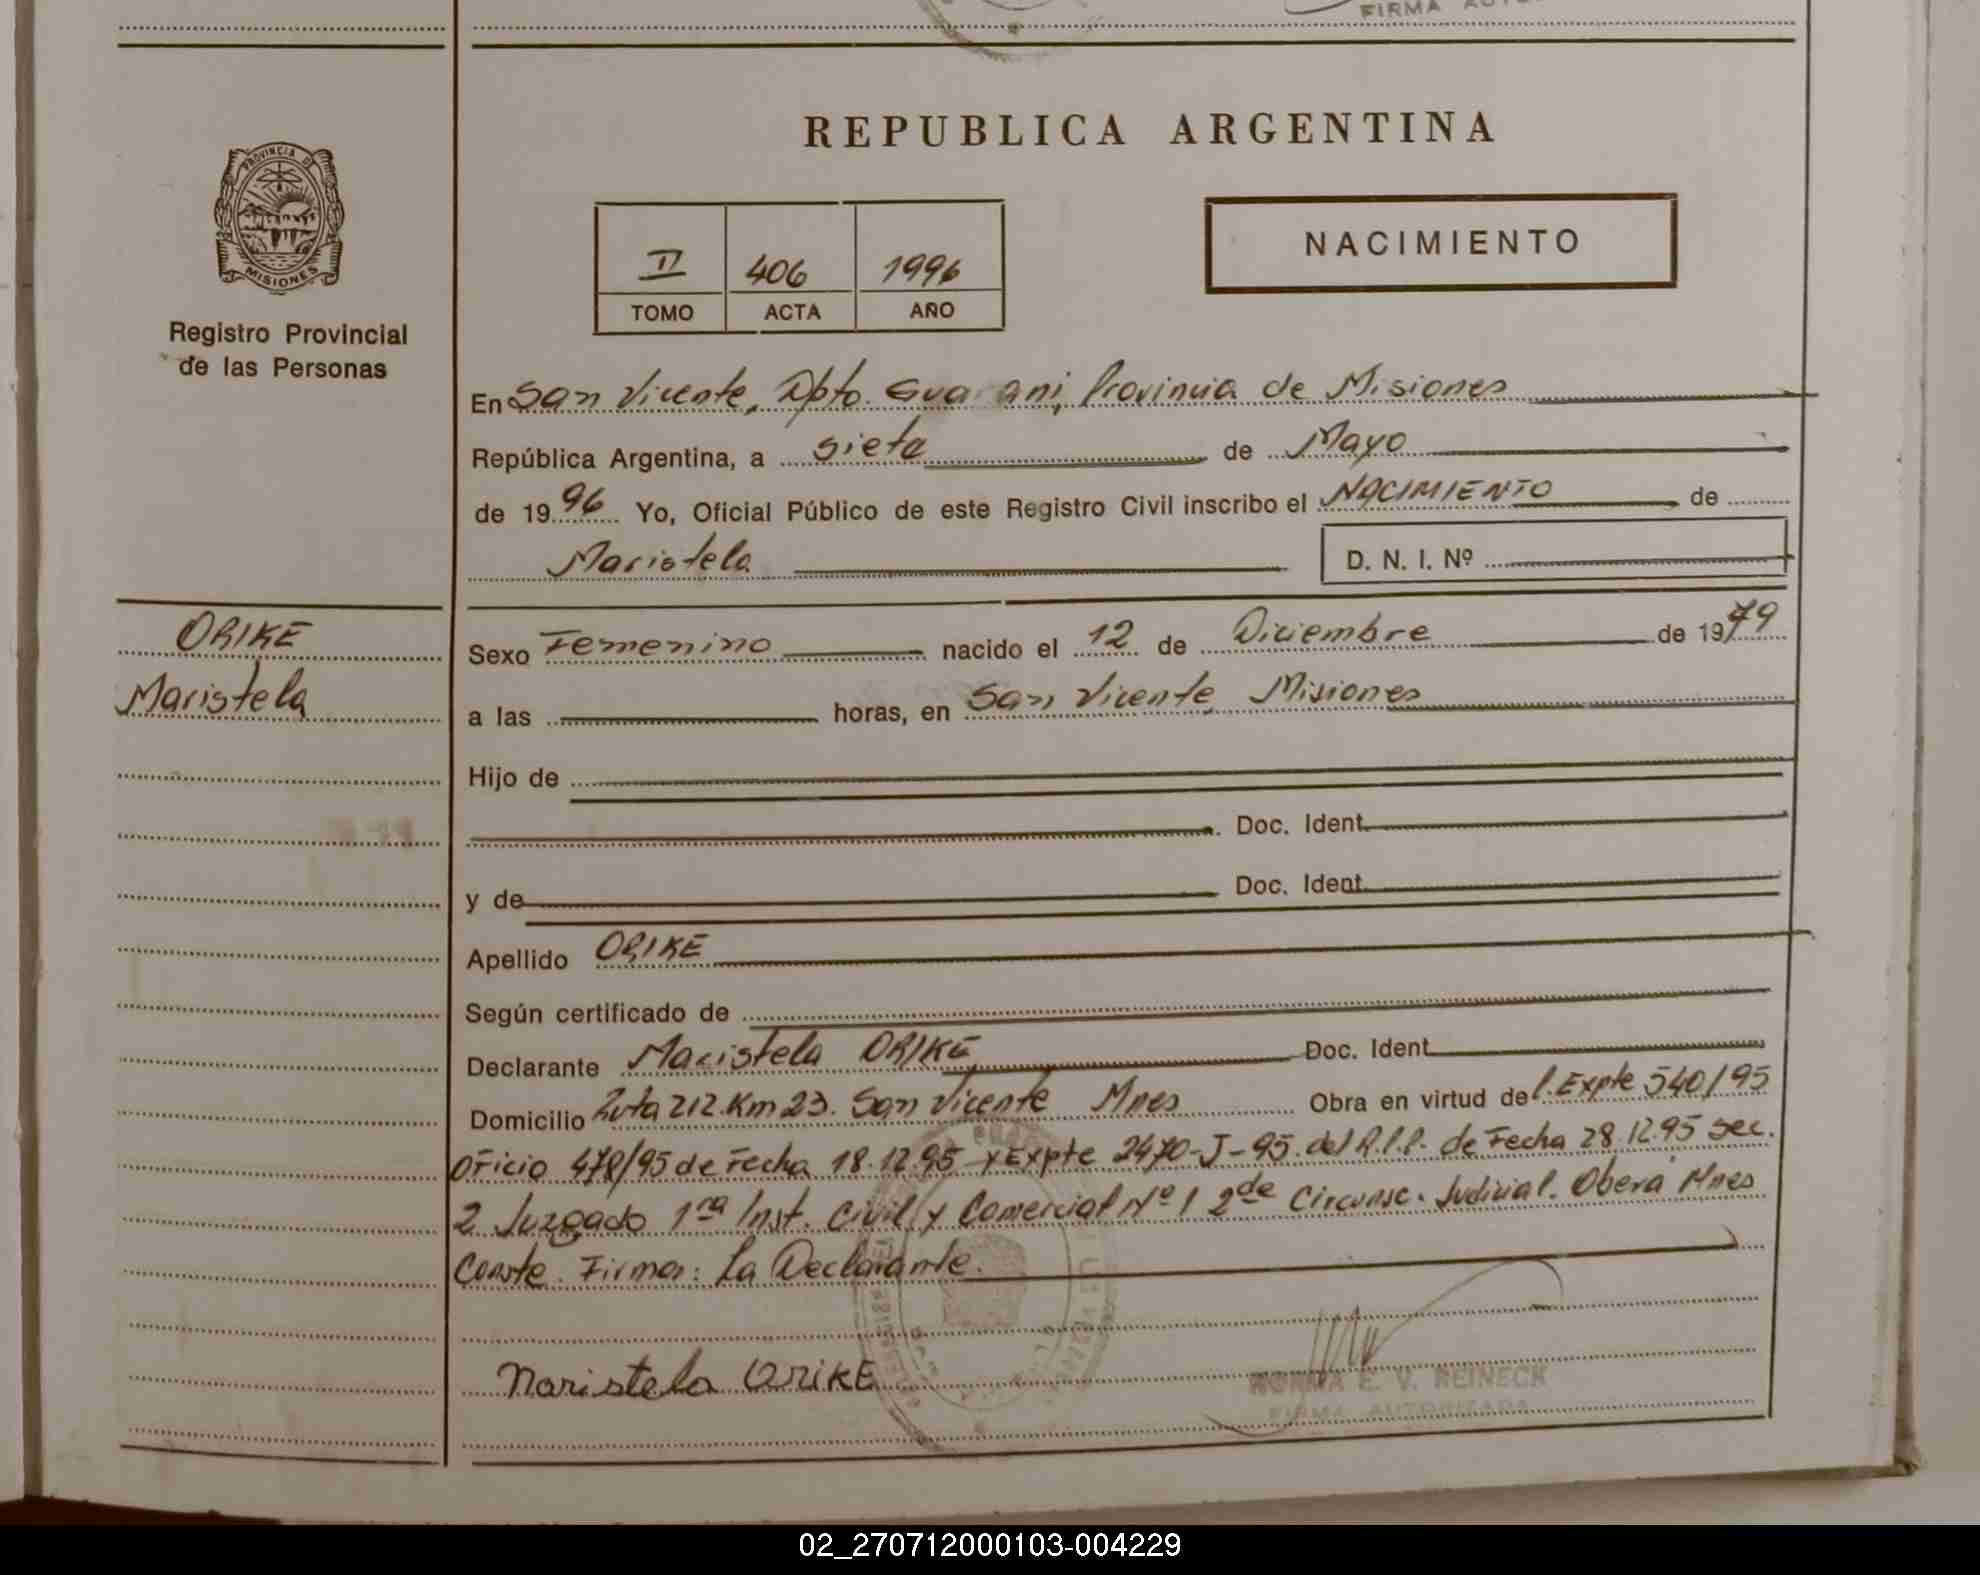 FIRMA
REPUBLICA ARGENTINA
PROVINCIA DE
MISIONES
Registro Provincial
de las Personas
II 406 1996
TOMO ACTA AÑO
NACIMIENTO
En San Vicente, Dpto. Guarani, Provincia de Misiones
República Argentina, a siete de Mayo
de 1996 Yo, Oficial Público de este Registro Civil inscribo el NACIMIENTO de
Maristela D. N. I. Nº
ORIKE
Maristela
Sexo Femenino nacido el 12 de Diciembre de 1979
a las horas, en San Vicente Misiones
Hijo de
Doc. Ident.
y de Doc. Ident.
Apellido ORIKE
Según certificado de
Declarante Maristela ORIKE Doc. Ident.
Domicilio Ruta 212. Km 23. San Vicente Mnes Obra en virtud del. Expte 540/95
Oficio 478/95 de Fecha 18.12.95 y Expte 2470-J-95. del R.P.P. de Fecha 28.12.95 Sec.
2 Juzgado 1ra Inst. Civil y Comercial Nº 1 2de Circunsc. Judicial. Oberá Mnes
Conste. Firma: La Declarante.
Maristela Orike
NORMA E. V. REINECK
FIRMA AUTORIZADA
02_270712000103-004229